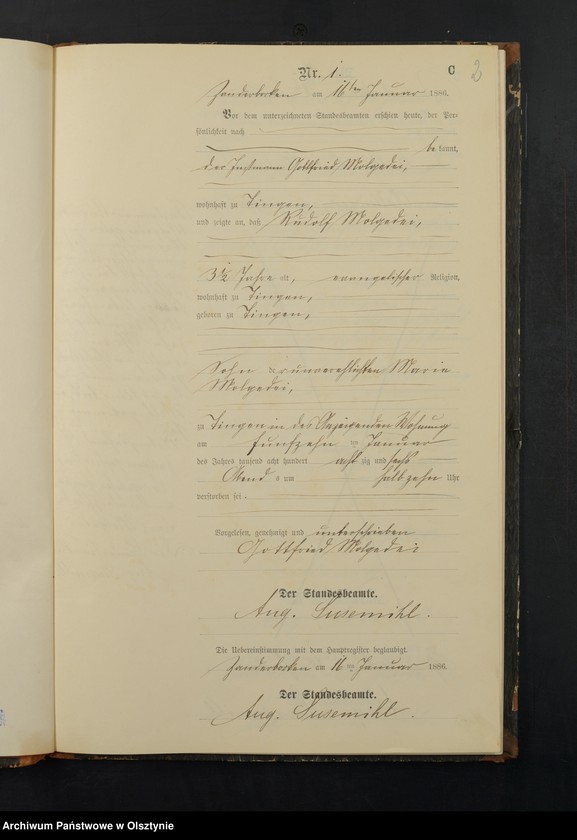 Nr. 1.
C 2
Sonderborken am 16ten Januar 1886.
Vor dem unterzeichneten Standesbeamten erschien heute, der Per-
sönlichkeit nach
be kannt,
der Instmann Gottfried Molgedei,
wohnhaft zu Tingen,
und zeigte an, daß Rudolf Molgedei,
3½ Jahre alt, evangelischer Religion,
wohnhaft zu Tingen,
geboren zu Tingen,
Sohn der unverehelichten Marie
Molgedei,
zu Tingen in des Anzeigenden Wohnung
am fünfzehn ten Januar
des Jahres tausend acht hundert acht zig und sechs
Abend s um halb zehn Uhr
verstorben sei.
Vorgelesen, genehmigt und unterschrieben
Gottfried Molgedei
Der Standesbeamte.
Aug. Susemihl.
Die Uebereinstimmung mit dem Hauptregister beglaubigt.
Sonderborken am 16 ten Januar 1886.
Der Standesbeamte.
Aug. Susemihl.
Archiwum Państwowe w Olsztynie